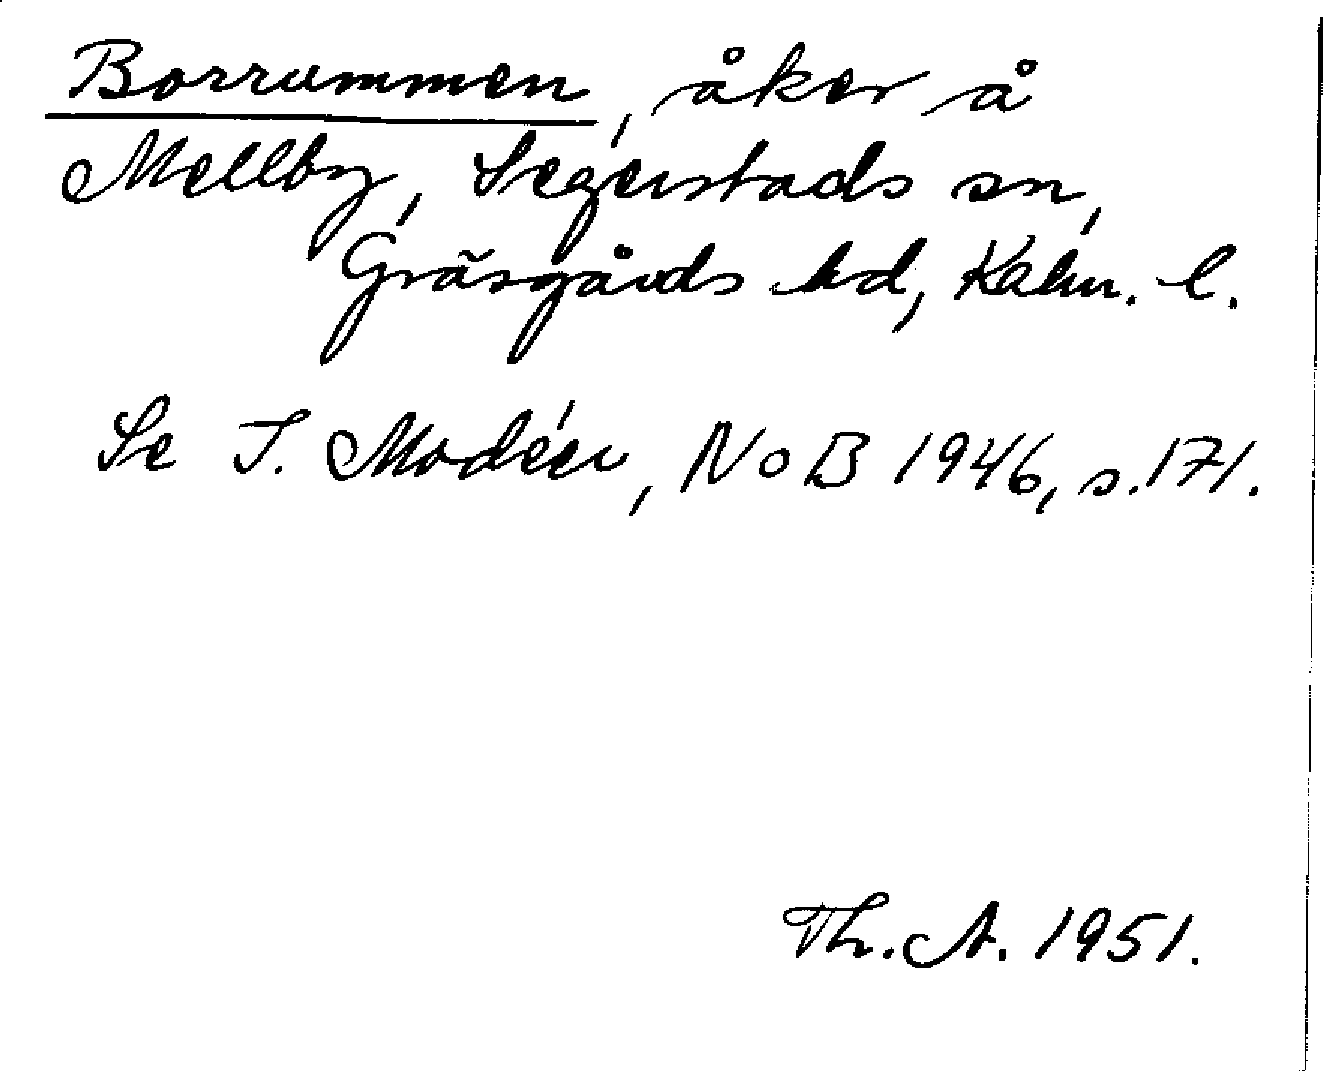 Borrummen, åker å
Mellby, Segerstads sn,
Gräsgårds hd, Kalm. l.
Se I. Modéer, NoB 1946, s. 171.
Th. A. 1951.